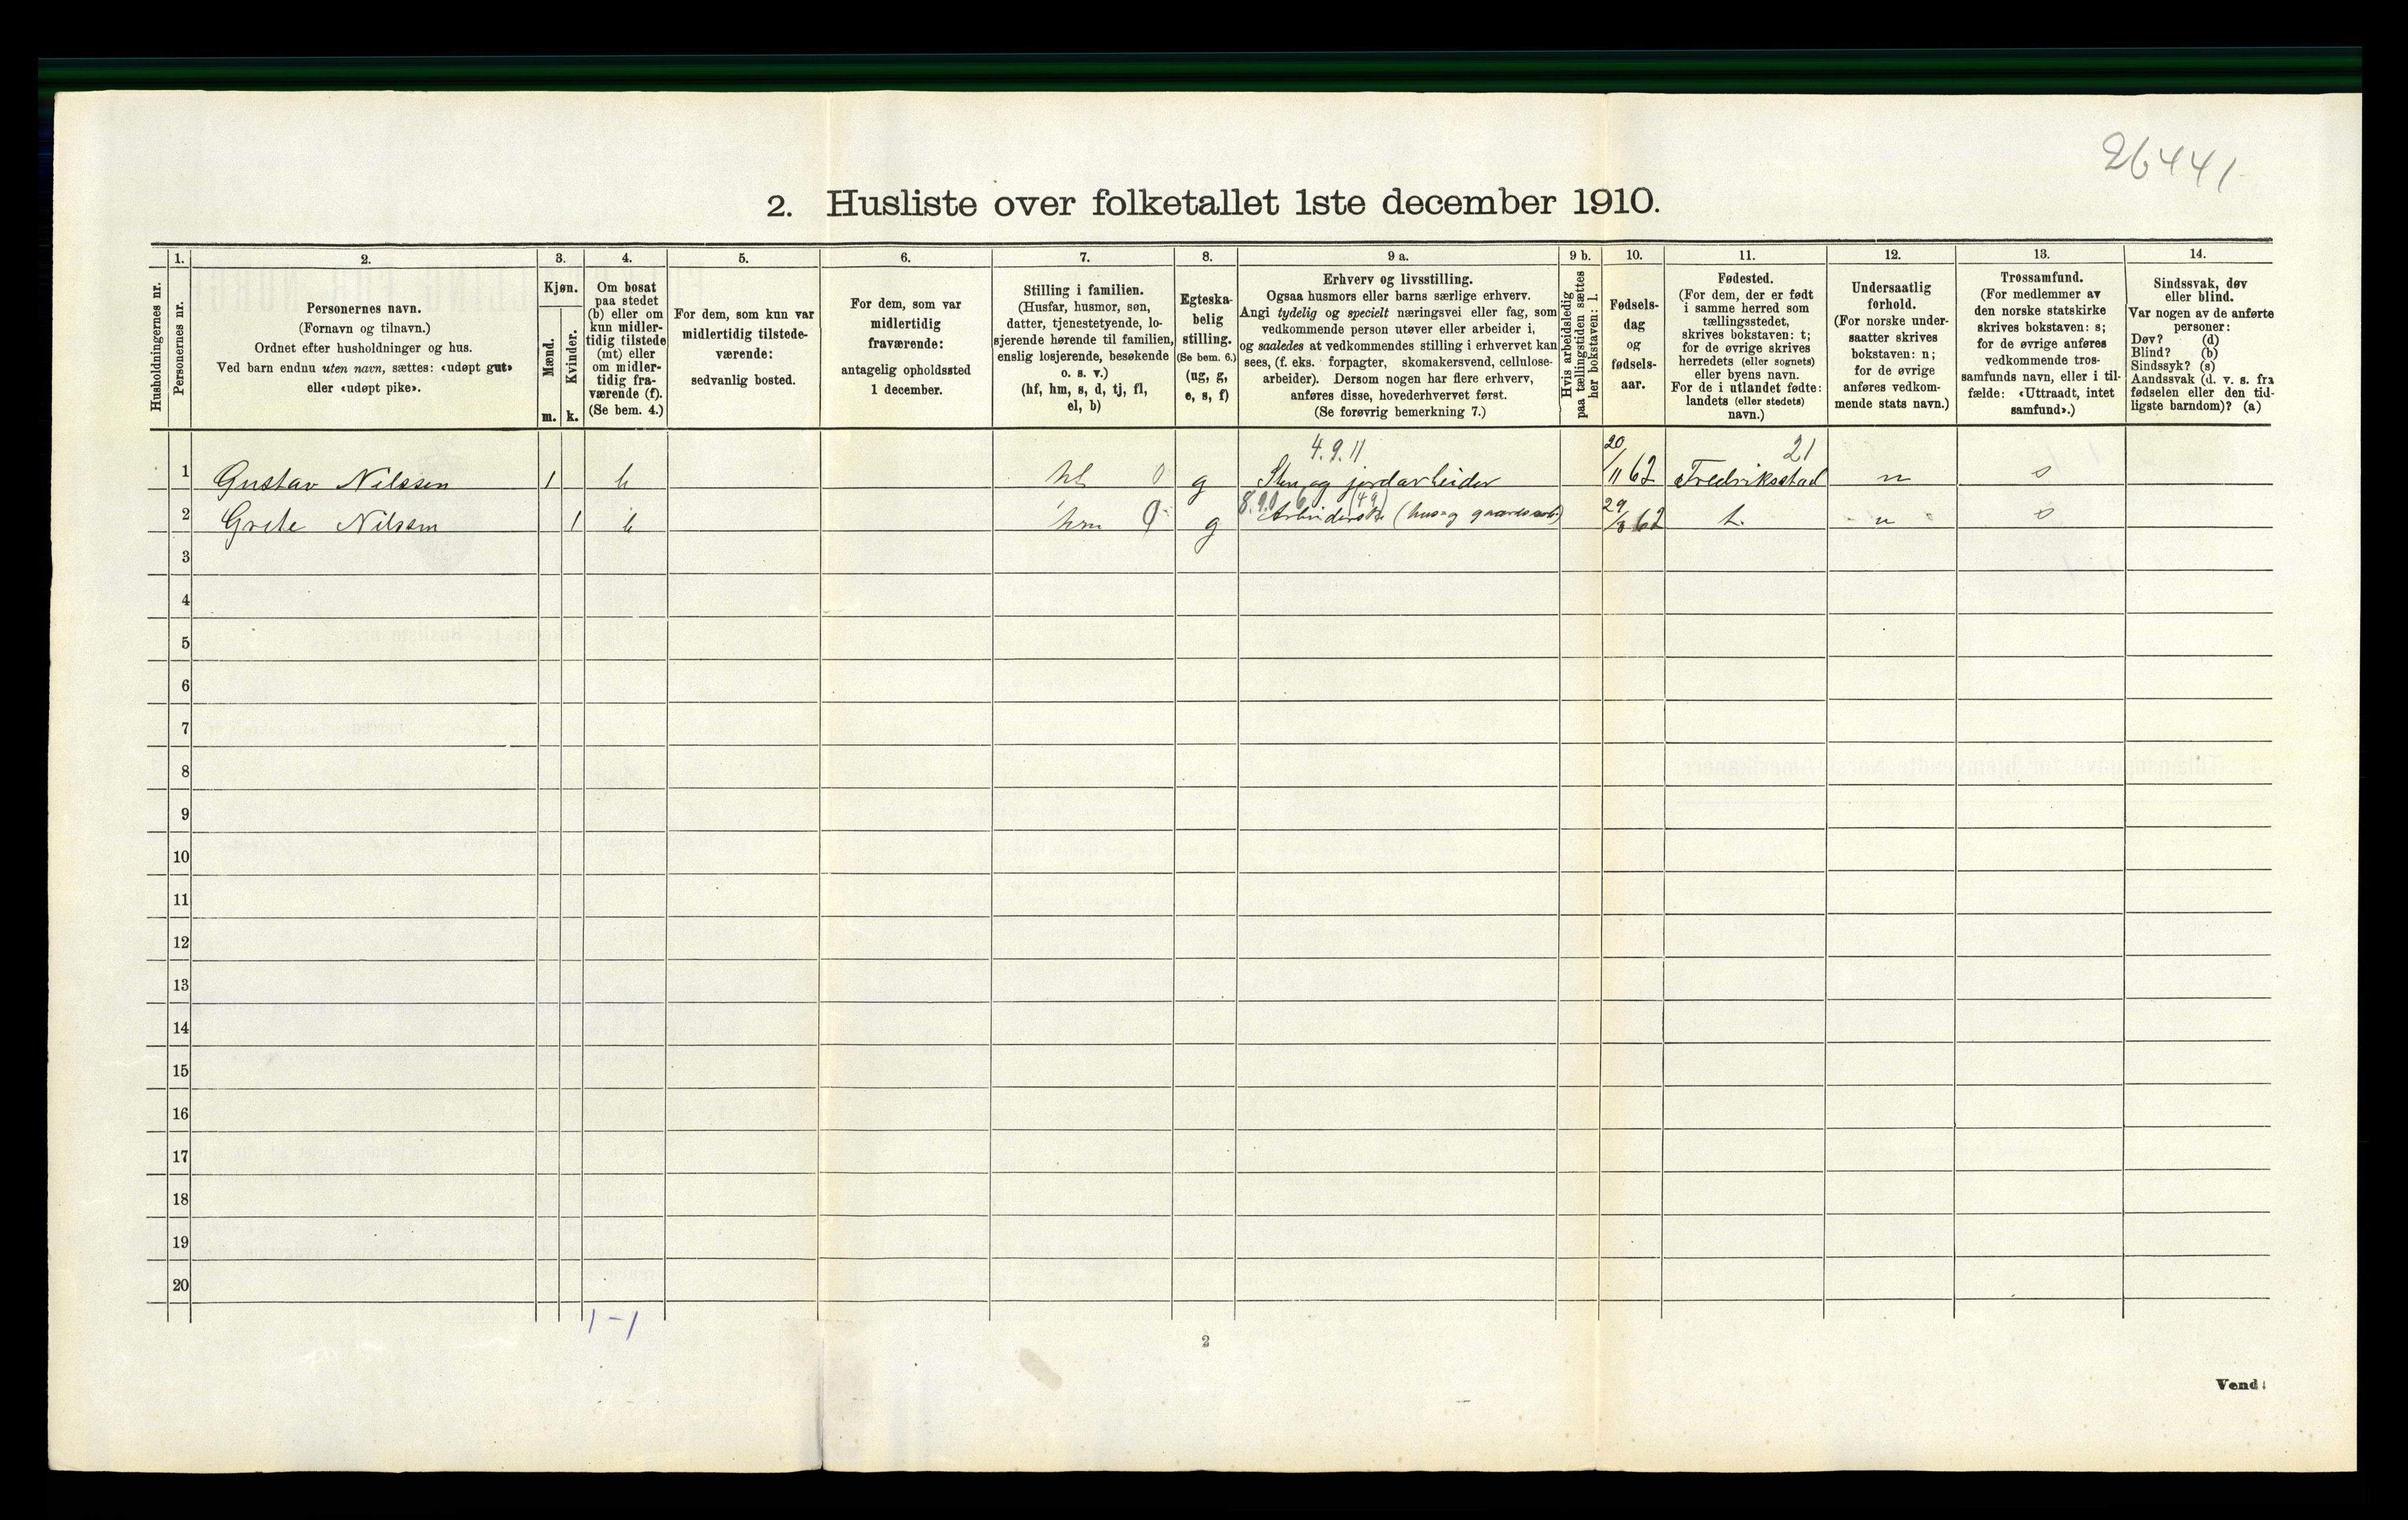 26441
2. Husliste over folketallet 1ste december 1910.
Husholdningernes nr.
1.
Personernes nr.
2.
Personernes navn.
(Fornavn og tilnavn.)
Ordnet efter husholdninger og hus.
Ved barn endnu uten navn, sættes: «udøpt gut»
eller «udøpt pike».
3.
Kjøn.
Mænd.
m.
Kvinder.
k.
4.
Om bosat
paa stedet
(b) eller om
kun midler-
tidig tilstede
(mt) eller
om midler-
tidig fra-
værende (f).
(Se bem. 4.)
5.
For dem, som kun var
midlertidig tilstede-
værende:
sedvanlig bosted.
6.
For dem, som var
midlertidig
fraværende:
antagelig opholdssted
1 december.
7.
Stilling i familien.
(Husfar, husmor, søn,
datter, tjenestetyende, lo-
sjerende hørende til familien,
enslig losjerende, besøkende
o. s. v.)
(hf, hm, s, d, tj, fl,
el, b)
8.
Egteska-
belig
stilling.
(Se bem. 6.)
(ug, g,
e, s, f)
9 a.
Erhverv og livsstilling.
Ogsaa husmors eller barns særlige erhverv.
Angi tydelig og specielt næringsvei eller fag, som
vedkommende person utøver eller arbeider i,
og saaledes at vedkommendes stilling i erhvervet kan
sees, (f. eks. forpagter, skomakersvend, cellulose-
arbeider). Dersom nogen har flere erhverv,
anføres disse, hovederhvervet først.
(Se forøvrig bemerkning 7.)
9 b.
Hvis arbeidsledig
paa tællingstiden sættes
her bokstaven: l.
10.
Fødsels-
dag
og
fødsels-
aar.
11.
Fødested.
(For dem, der er født
i samme herred som
tællingsstedet,
skrives bokstaven: t;
for de øvrige skrives
herredets (eller sognets)
eller byens navn.
For de i utlandet fødte:
landets (eller stedets)
navn.)
12.
Undersaatlig
forhold.
(For norske under-
saatter skrives
bokstaven: n;
for de øvrige
anføres vedkom-
mende stats navn.)
13.
Trossamfund.
(For medlemmer av
den norske statskirke
skrives bokstaven: s;
for de øvrige anføres
vedkommende tros-
samfunds navn, eller i til-
fælde: «Uttraadt, intet
samfund».)
14.
Sindssvak, døv
eller blind.
Var nogen av de anførte
personer:
Døv? (d)
Blind? (b)
Sindssyk? (s)
Aandssvak (d. v. s. fra
fødselen eller den tid-
ligste barndom)? (a)
4.9.11 20 21
1 Gustav Nilssen 1 b hf 0 g Sten og jordarbeider /11 62 Fredriksstad n s
2 Grete Nilssen 1 b hm 0 g Arbeiderske (hus og gaardsarb.) 29/3 62 t. n s
3
4
5
6
7
8
9
10
11
12
13
14
15
16
17
18
19
20
1-1
2
Vend!